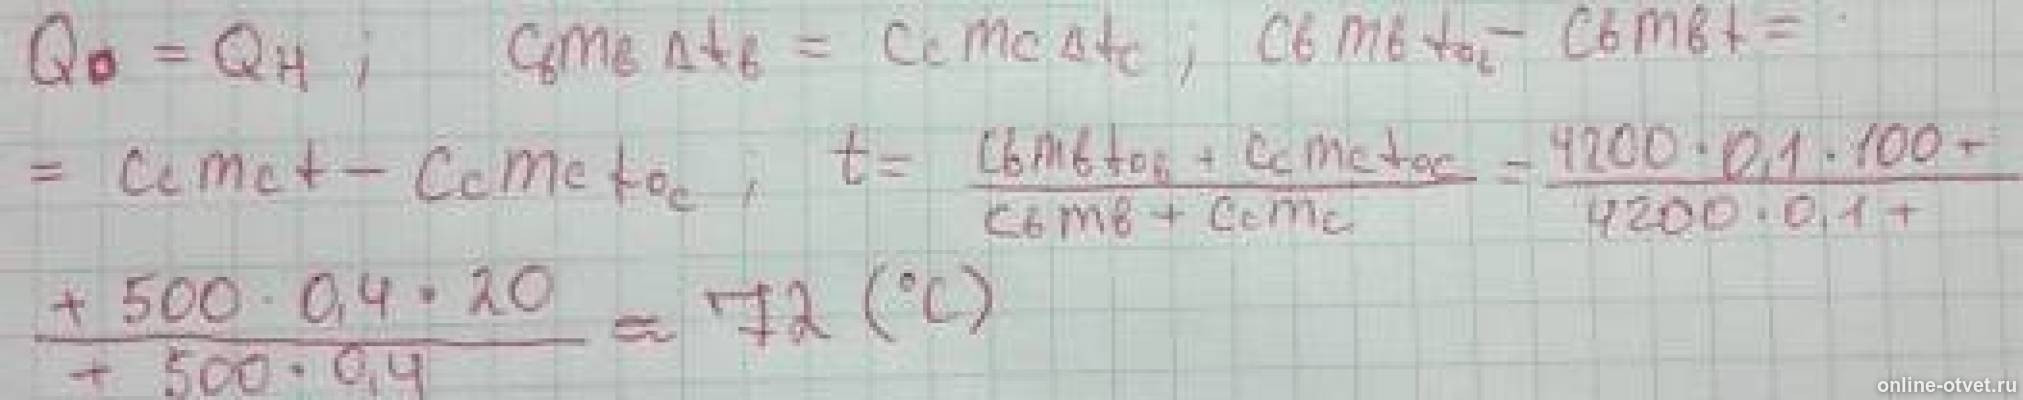 Qо = Qн ; cвmвΔtв = ccmcΔtc ; cвmвtoв - cвmвt =
= ccmct - ccmctoc ; t = (cвmвtoв + ccmctoc)/(cвmв + ccmc) = 4200·0,1·100 + / 4200·0,1 +
+ 500·0,4·20 / + 500·0,4 ≈ 72 (°C)
online-otvet.ru